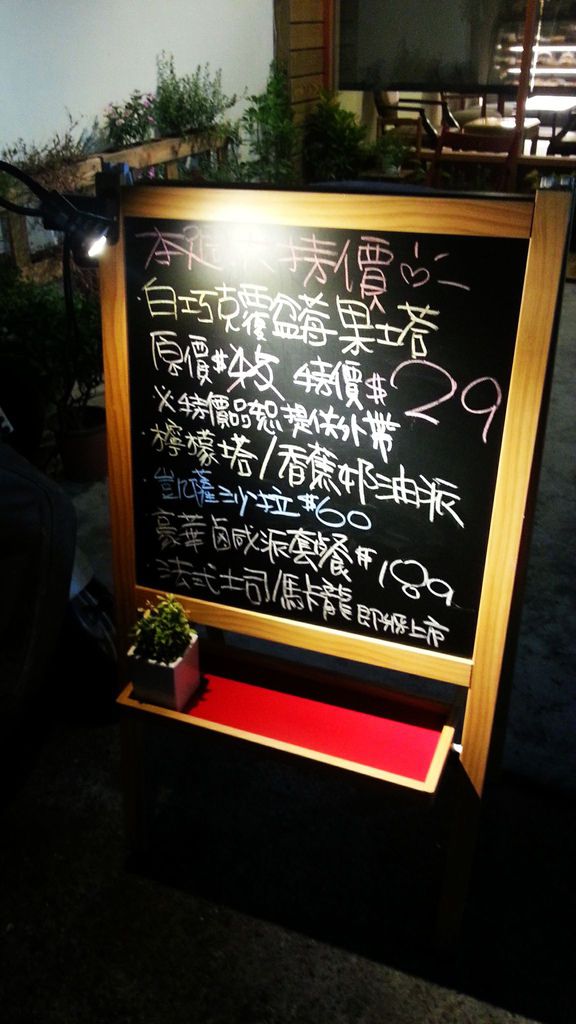 本週 特價♡
·白巧克力覆盆莓果塔
原價$ 特價$29
※特價品恕提供外帶
·檸檬塔/香蕉奶油派
·凱薩沙拉$60
·豪華鹹派套餐$189
·法式土司/馬卡龍 即將上市